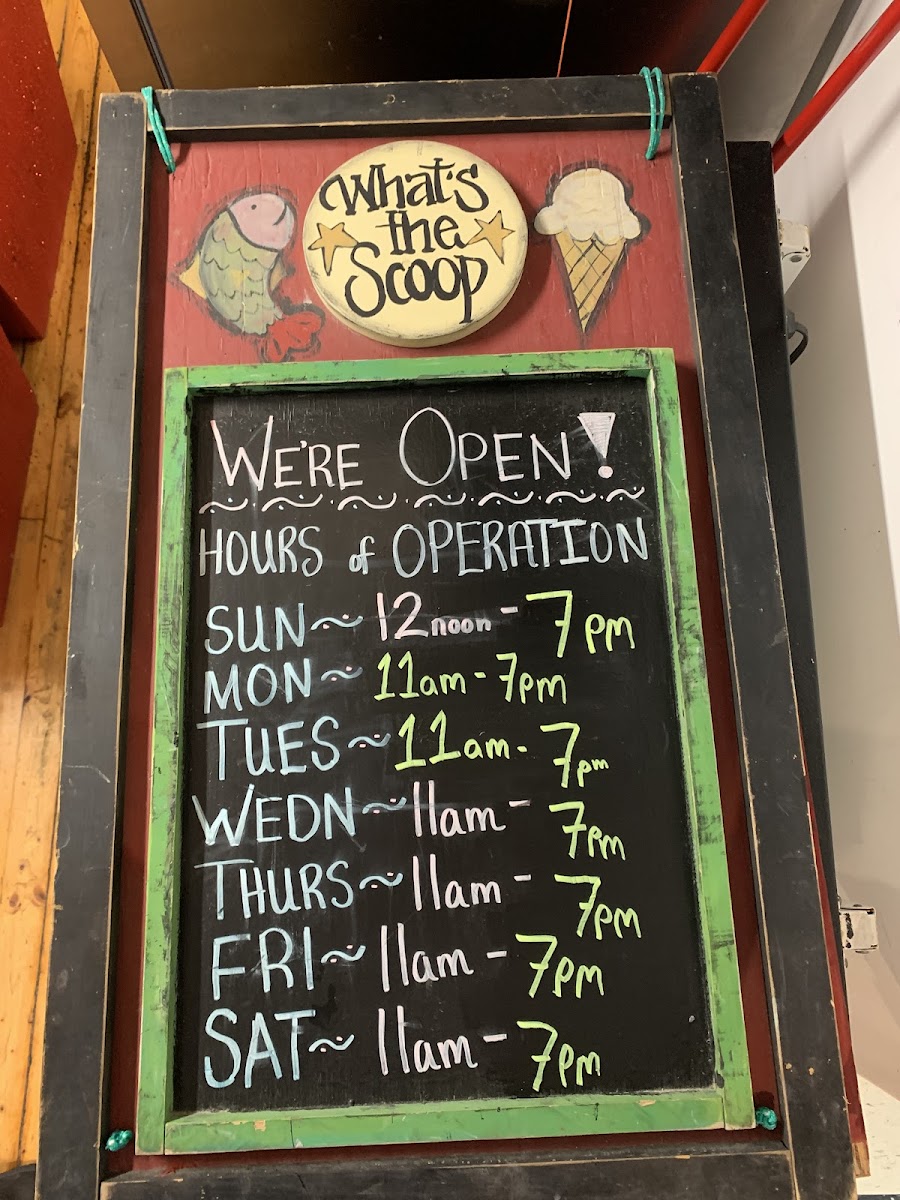 What's
the
Scoop
WE'RE OPEN!
HOURS of OPERATION
SUN~12noon-7pm
MON~11am-7pm
TUES~11am-7pm
WEDN~11am-7pm
THURS~11am-7pm
FRI~11am-7pm
SAT~11am-7pm